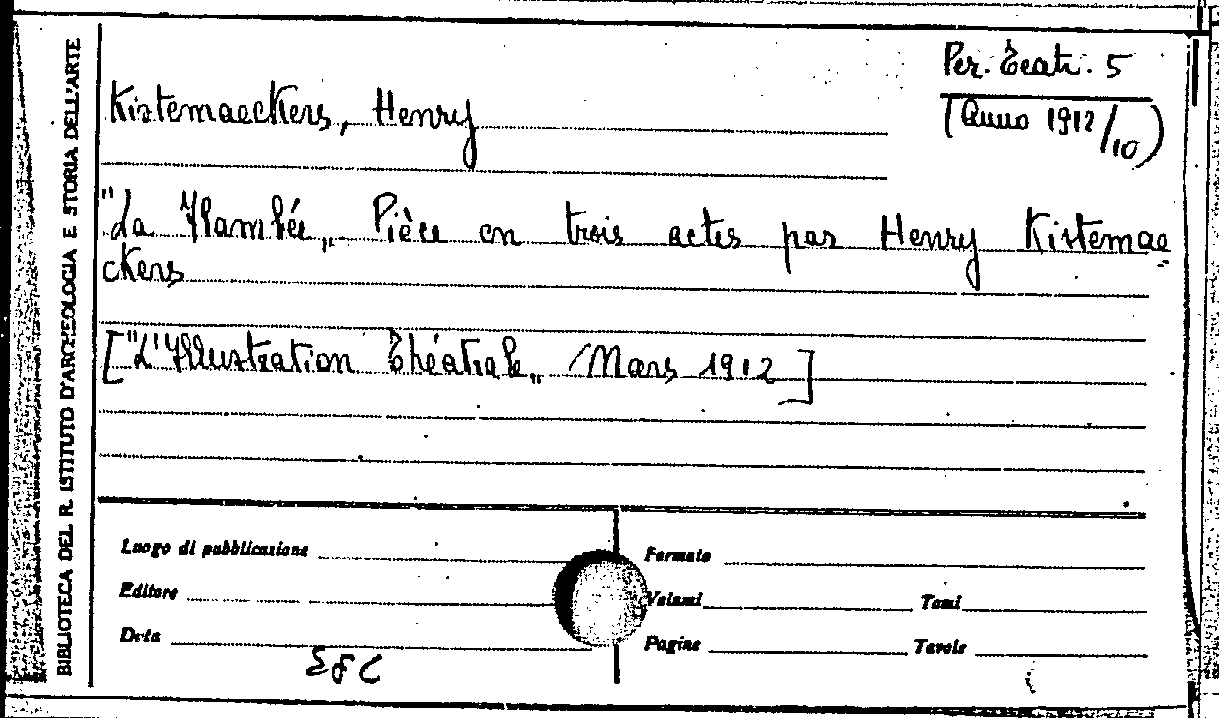 Per. Teatr. 5
(Anno 1912/10)
Kistemaeckers, Henry
"La Flambée„ Pièce en trois actes par Henry Kistemae=
ckers
["L'Illustration Théatrale„ Mars 1912]
BIBLIOTECA DEL R. ISTITUTO D'ARCHEOLOGIA E STORIA DELL'ARTE
Luogo di pubblicazione
Formato
Editore
Volumi
Tomi
Data
Pagine
Tavole